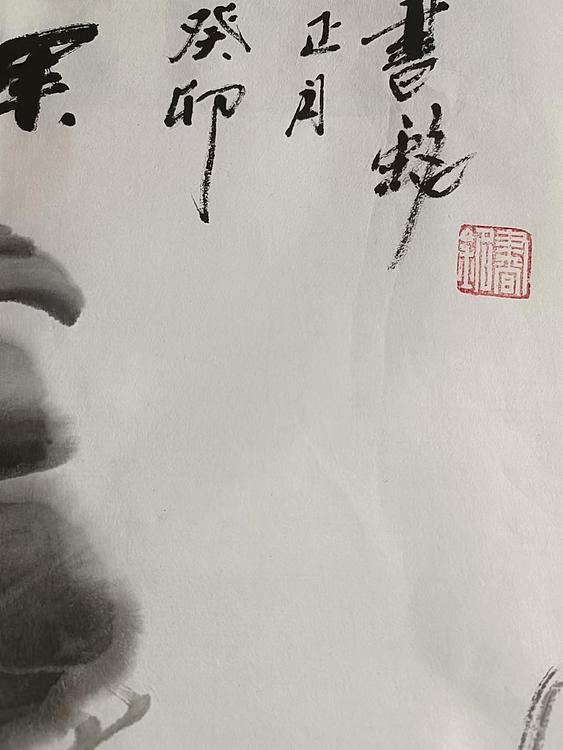 果
癸卯
正月
書
書